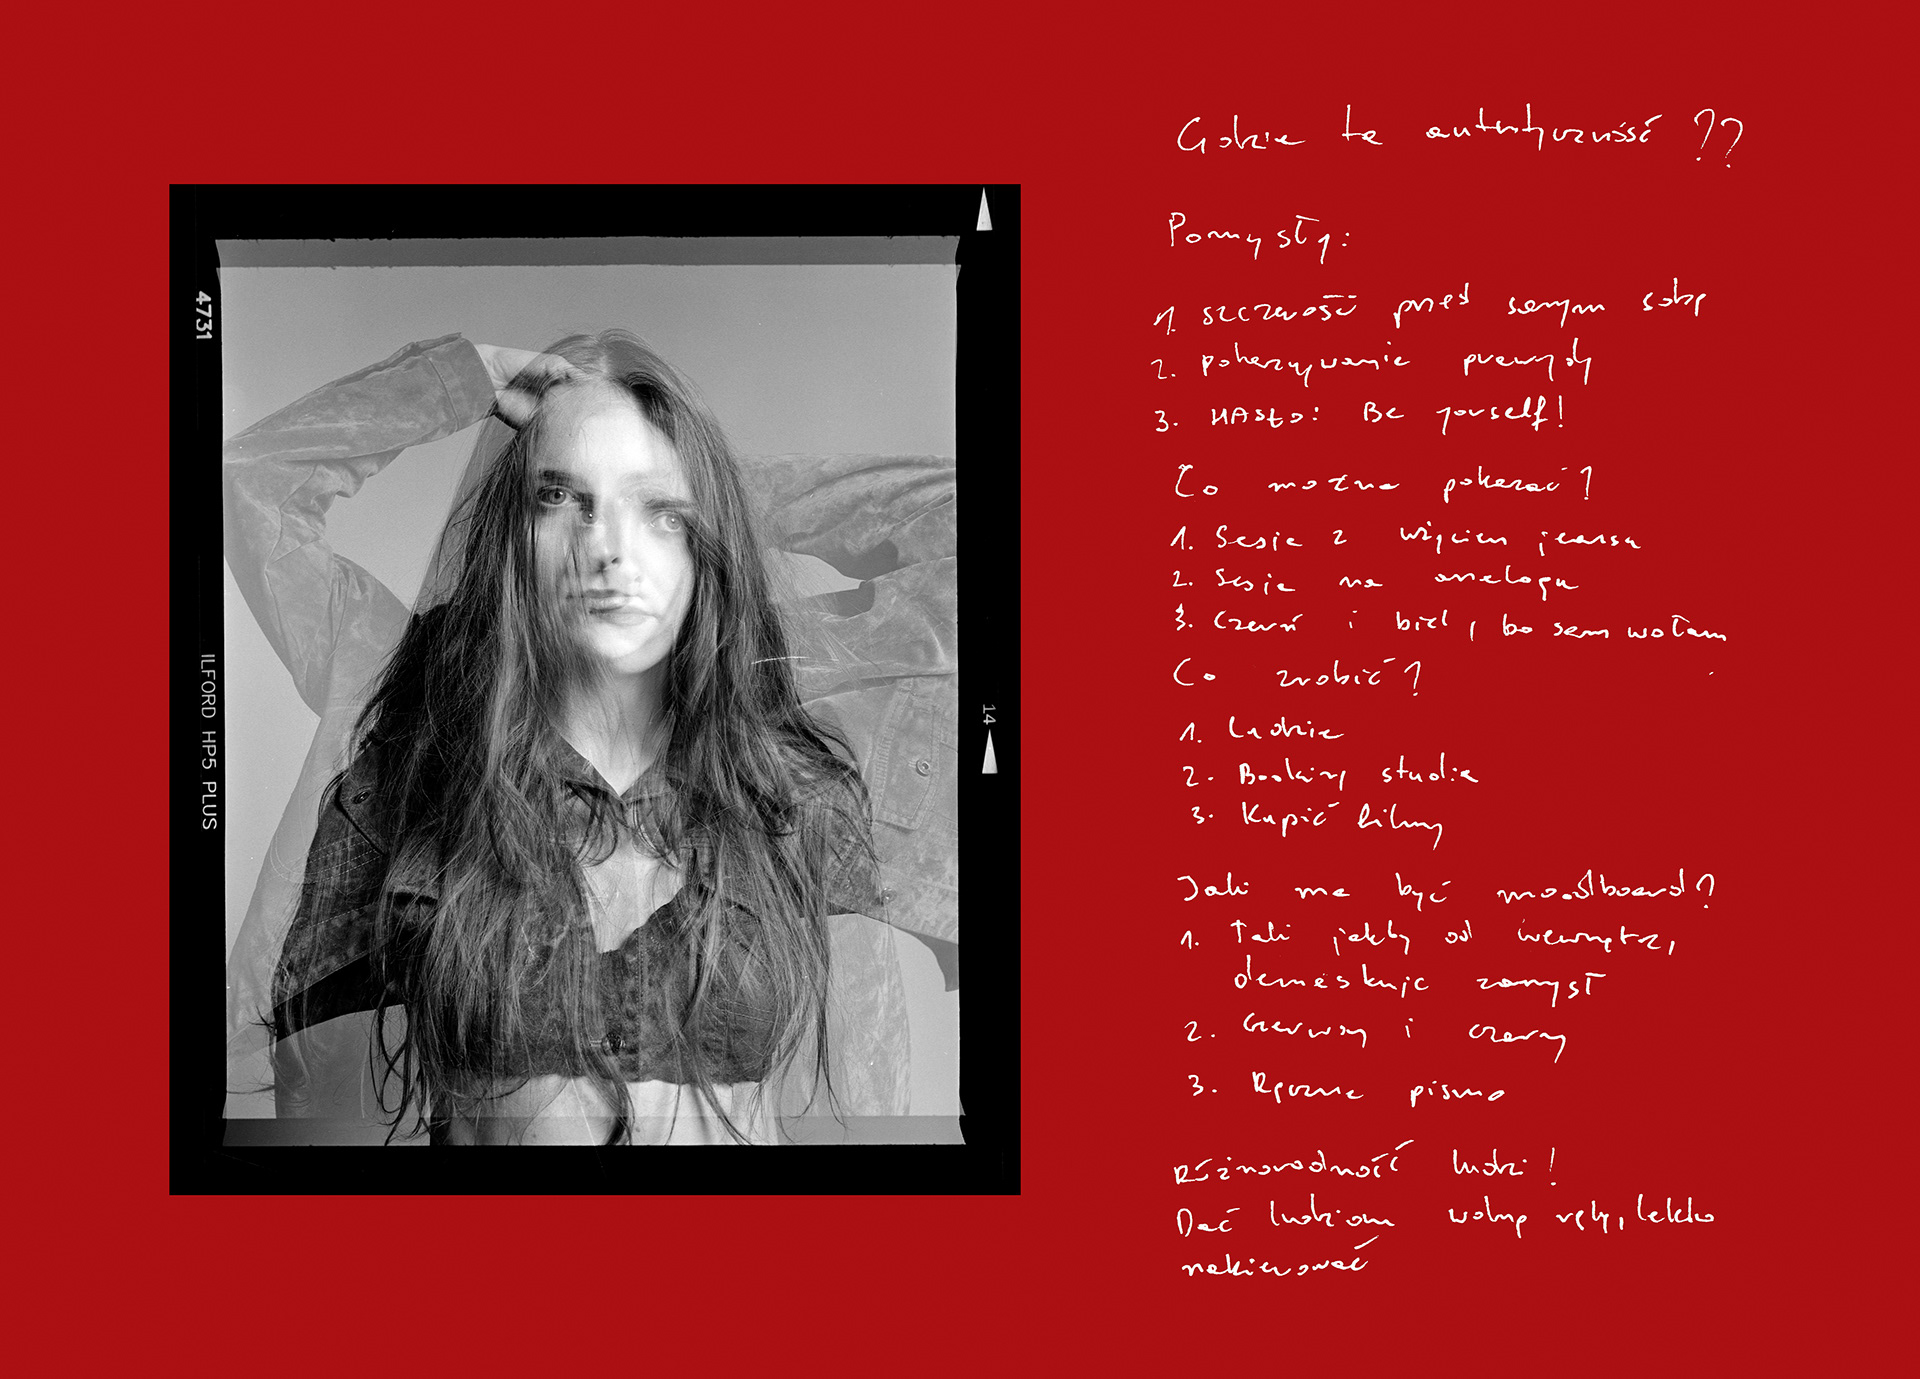 4731
ILFORD HP5 PLUS
14
Gdzie ta autentyczność ??
Pomysły:
1. szczerość przed samym sobą
2. pokazywanie prawdy
3. HASŁO: Be yourself!
Co można pokazać?
1. Sesje z użyciem jeansu
2. Sesje na analogu
3. Czerń i biel, bo sam wołam
Co zrobić?
1. Ludzie
2. Booking studia
3. Kupić filmy
Jaki ma być moodboard?
1. Taki jakby od wewnątrz,
demaskuje zamysł
2. Czerwony i czarny
3. Ręczne pismo
Różnorodność ludzi!
Dać ludziom wolną rękę, lekko
nakierować